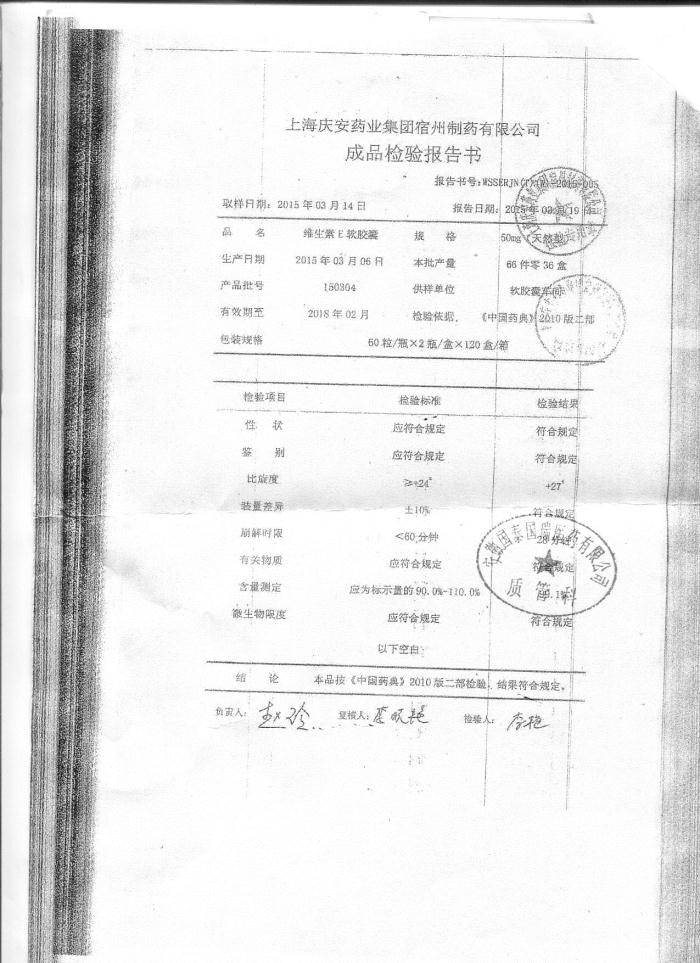 上海庆安药业集团宿州制药有限公司
成品检验报告书
报告书号:WSSERJN(T)(W)-2015-005
取样日期:2015年03月14日 报告日期:2015年03月19日
品 名 维生素E软胶囊 规 格 50mg(天然型)
生产日期 2015年03月06日 本批产量 66件零36盒
产品批号 150304 供样单位 软胶囊车间
有效期至 2018年02月 检验依据 《中国药典》2010版二部
包装规格 60粒/瓶×2瓶/盒×120盒/箱
检验项目 检验标准 检验结果
性 状 应符合规定 符合规定
鉴 别 应符合规定 符合规定
比旋度 ≥+24° +27°
装量差异 ±10% 符合规定
崩解时限 <60分钟 28分钟
有关物质 应符合规定 符合规定
含量测定 应为标示量的90.0%-110.0%
微生物限度 应符合规定 符合规定
以下空白
结 论 本品按《中国药典》2010版二部检验,结果符合规定。
负责人: 赵玲 复核人: 检验人: 李艳
安徽国泰国瑞医药有限公司
质管科